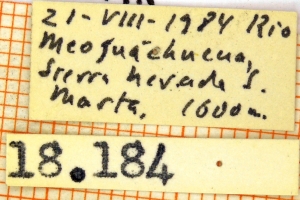 21-VIII-1984 Rio
Sierra Nevada S.
Marta, 1600m.
18.184